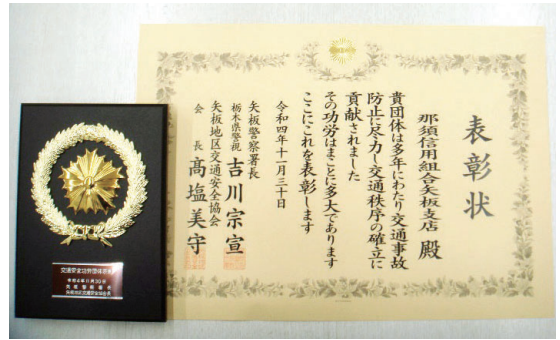 表彰状
那須信用組合矢板支店 殿
貴団体は多年にわたり交通事故
防止に尽力し交通秩序の確立に
貢献されました
その功労はまことに多大であります
ここにこれを表彰します
令和四年十一月三十日
矢板警察署長
栃木県警視 古川宗宣
矢板地区交通安全協会
会長 高塩美守
交通安全功労団体表彰
令和4年11月30日
矢板警察署長
矢板地区交通安全協会長